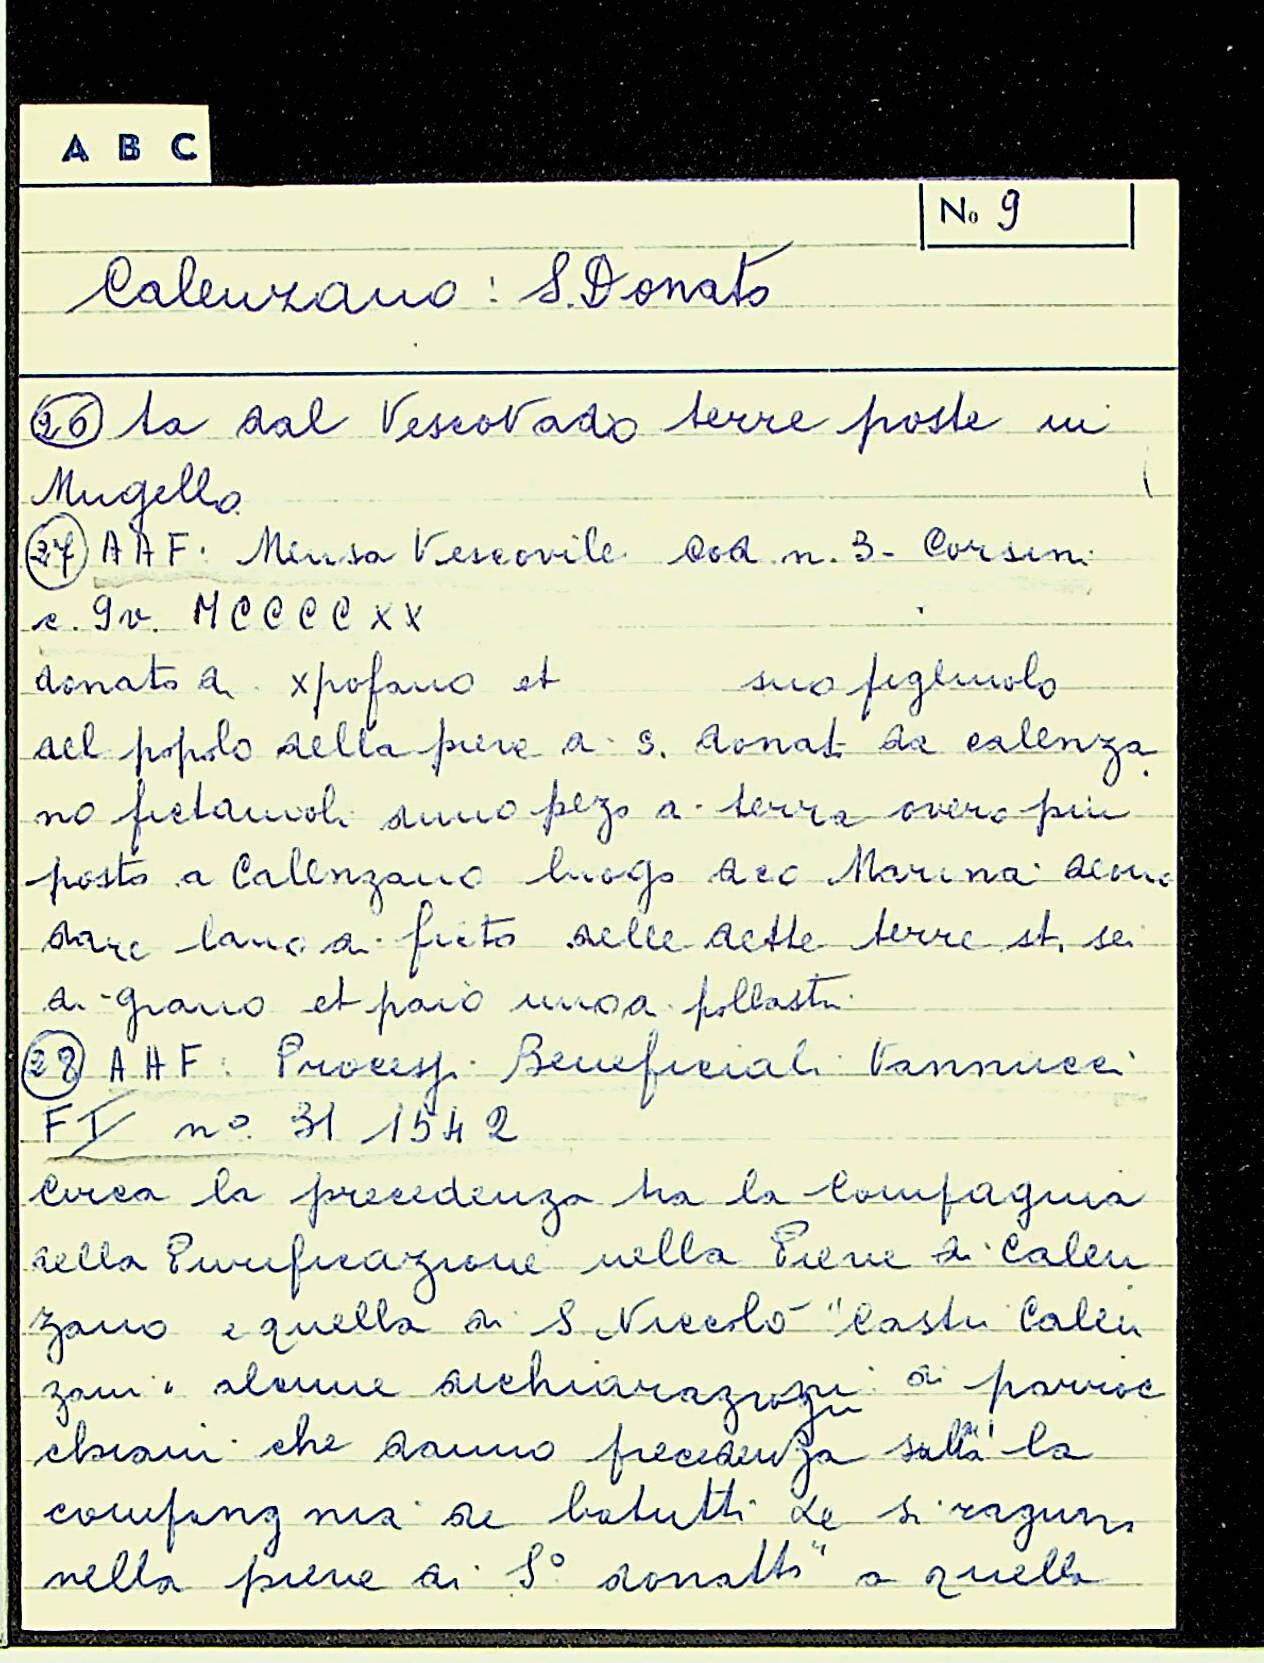 A B C
No 9
Calenzano: S. Donato
26 ta dal Vescovado terre poste in
Mugello
27 AAF: Mensa Vescovile Cod n. 3- Corsini
c. 9v. MCCCCXX
donato di xpofano et suo figliuolo
del popolo della pieve di s. donato da calenza
no fictaiuoli d'uno pezo di terra overo più
posto a Calenzano luogo dco Marina deono
dare lanno di ficto delle dette terre st. sei
di grano et paio uno di pollastri
28 AAF: Processi Beneficiali Vannucci
FI n°. 31 1542
Circa la precedenza tra la Compagnia
della Purificazione nella Pieve di Calen
zano e quella di S Niccolò "Castri Calen
zani" alcune dichiarazioni di parroc
chiani che danno precedenza "alla la
compangnia de batutti che si raguna
nella pieve di S° donatto" a quella